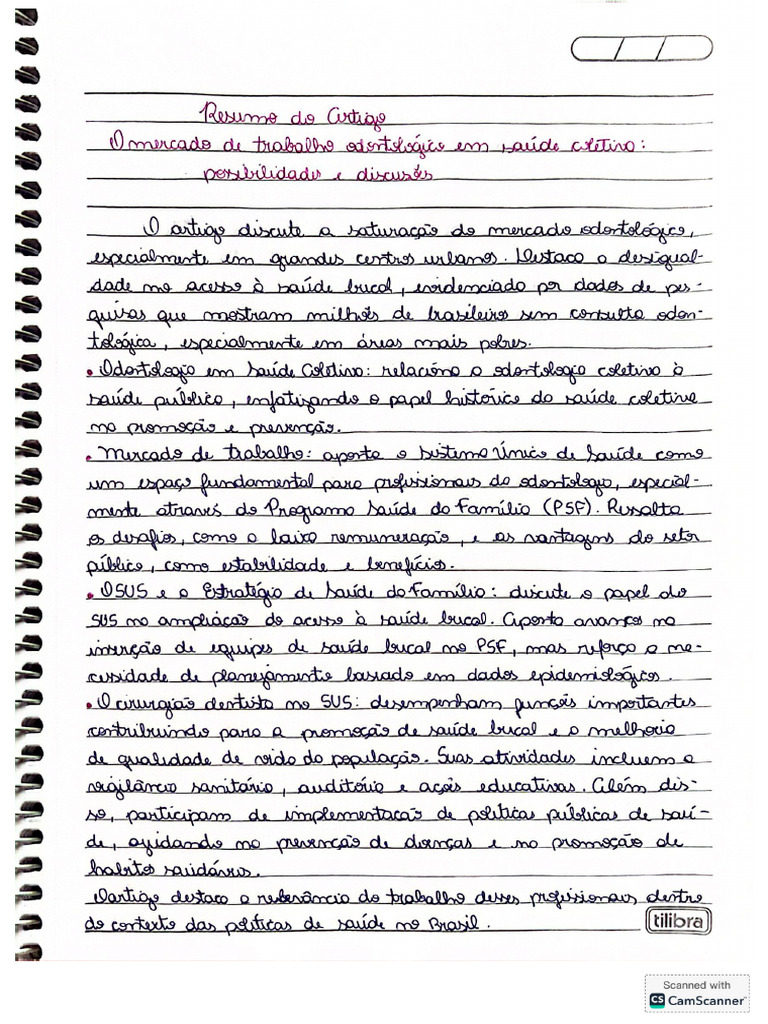 Resumo do Artigo
O mercado de trabalho odontológico em saúde coletiva:
possibilidades e discusões
O artigo discute a saturação do mercado odontológico,
especialmente em grandes centros urbanos. Destaca a desigual-
dade no acesso à saúde bucal, evidenciado por dados de pes-
quisas que mostram milhões de brasileiros sem consulta odon-
tológica, especialmente em áreas mais pobres.
• Odontologia em Saúde Coletiva: relaciona a odontologia coletiva à
saúde pública, enfatizando o papel histórico da saúde coletiva
na promoção e prevenção.
• Mercado de trabalho: aponta o Sistema Único de Saúde como
um espaço fundamental para profissionais da odontologia, especial-
mente através do Programa Saúde da Família (PSF). Ressalta
os desafios, como a baixa remuneração, e as vantagens do setor
público, como estabilidade e benefícios.
• O SUS e a Estratégia de Saúde da Família: discute o papel do
SUS na ampliação do acesso à saúde bucal. Aponta avanços na
inserção de equipes de saúde bucal no PSF, mas reforça a ne-
cessidade de planejamento baseado em dados epidemiológicos.
• O cirurgião dentista no SUS: desempenham funções importantes
contribuindo para a promoção de saúde bucal e a melhoria
de qualidade de vida da população. Suas atividades incluem a
vigilância sanitária, auditoria e ações educativas. Além dis-
so, participam de implementação de políticas públicas de saú-
de, ajudando na prevenção de doenças e na promoção de
habitos saudáveis.
O artigo destaca a relevância do trabalho desses profissionais dentro
do contexto das políticas de saúde no Brasil.
tilibra
Scanned with
CS CamScanner